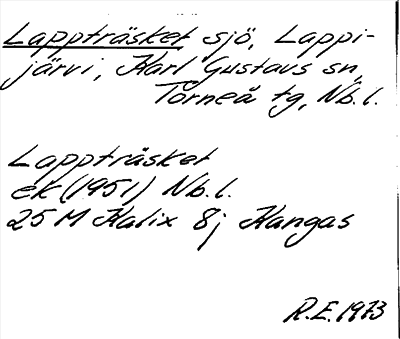 Lappträsket sjö, Lappi-
järvi, Karl Gustavs sn,
Torneå tg, Nb.l.
Lappträsket
ek (1951) Nb.l.
25 M Kalix 8j Kangas
R.E. 1973